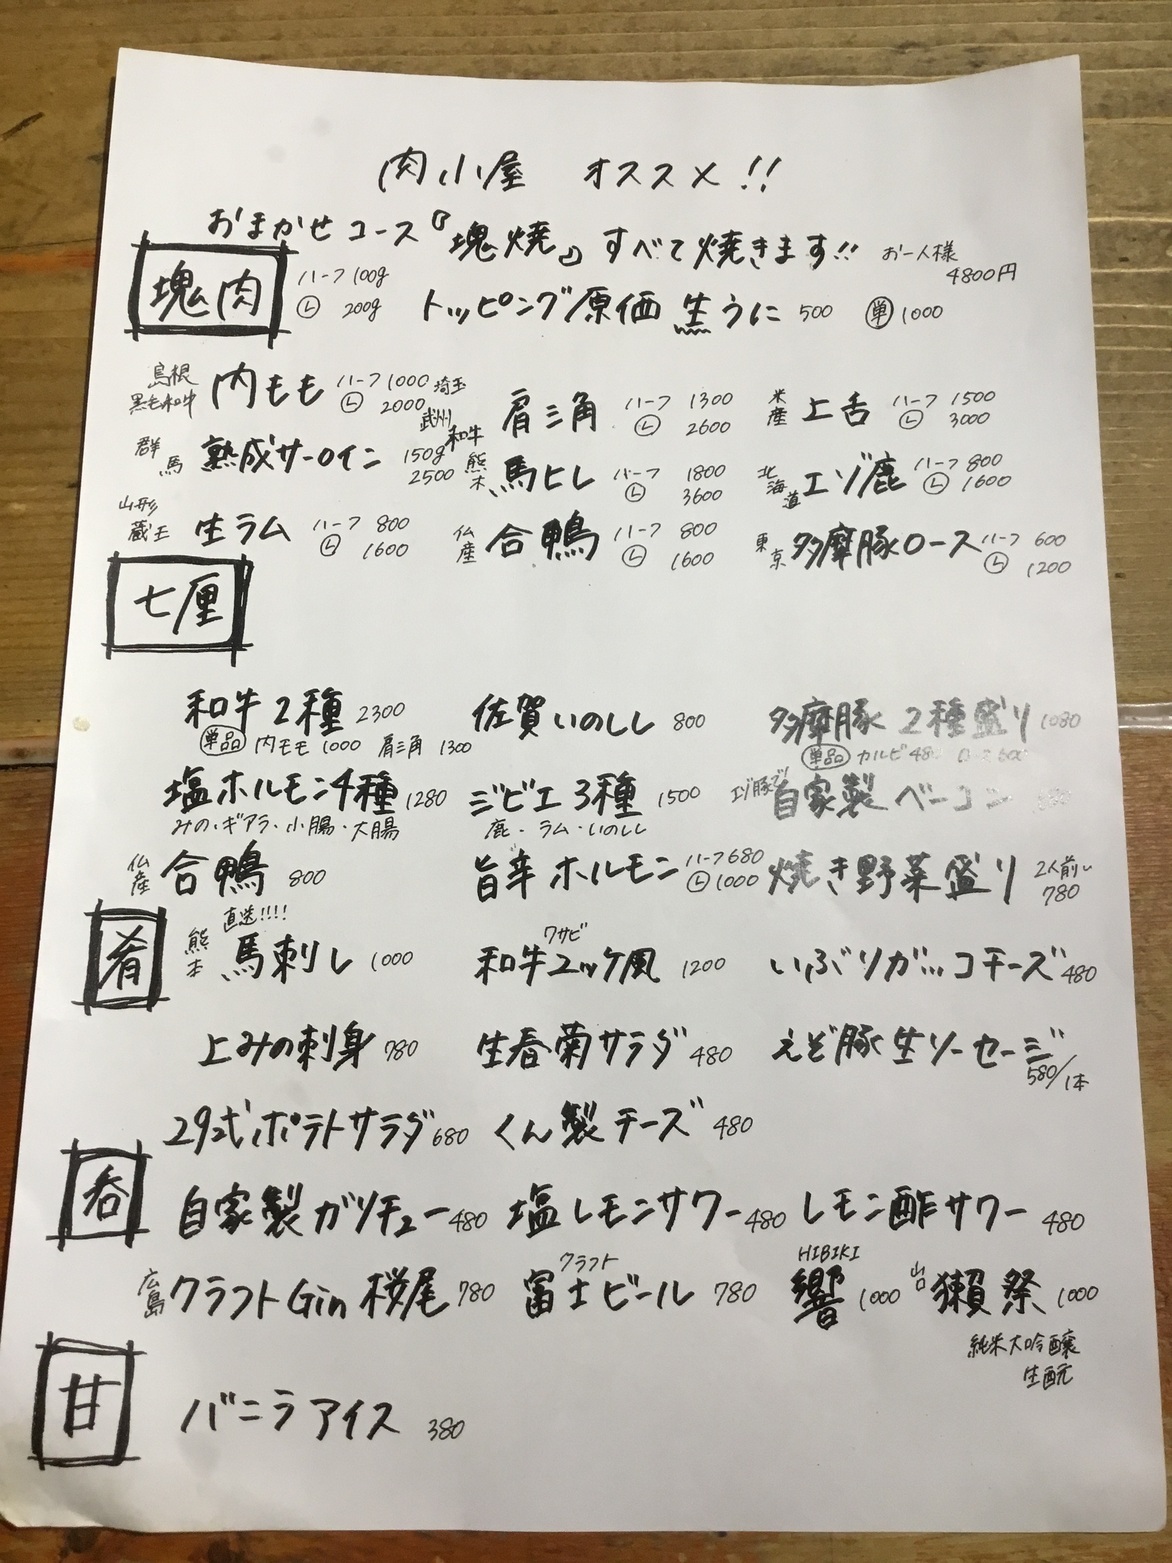 肉小屋 オススメ!!
おまかせコース『塊焼』すべて焼きます!! お一人様 4800円
塊肉 ハーフ 100g Ⓛ 200g
トッピング原価 生うに 500 ㊥単 1000
島根 黒毛和牛 内もも ハーフ 1000 Ⓛ 2000
埼玉 武州 和牛 肩三角 ハーフ 1300 Ⓛ 2600
米産 上舌 ハーフ 1500 Ⓛ 3000
群馬 熟成サーロイン 150g 2500
熊本 馬ヒレ ハーフ 1800 Ⓛ 3600
北海道 エゾ鹿 ハーフ 800 Ⓛ 1600
山形 蔵王 生ラム ハーフ 800 Ⓛ 1600
仏産 合鴨 ハーフ 800 Ⓛ 1600
東京 多摩豚ロース ハーフ 600 Ⓛ 1200
七厘
和牛2種 2300
単品 内モモ 1000 肩三角 1300
佐賀いのしし 800
多摩豚 2種盛り 1080
単品 カルビ 480 ロース 600
塩ホルモン4種 1280
みの・ギアラ・小腸・大腸
ジビエ3種 1500
鹿・ラム・いのしし
エゾ豚で! 自家製ベーコン
仏産 合鴨 800
旨辛ホルモン ハーフ 680 Ⓛ 1000
焼き野菜盛り 2人前〜 780
肴
熊本 直送!!!! 馬刺し 1000
和牛ユッケ風 ワサビ 1200
いぶりガッコチーズ 480
上みの刺身 780
生春菊サラダ 480
えぞ豚生ソーセージ 580/1本
29式ポテトサラダ 680
くん製チーズ 480
呑
自家製ガリチュー 480
塩レモンサワー 480
レモン酢サワー 480
広島 クラフトGin 桜尾 780
クラフト 富士ビール 780
HIBIKI 響 1000
山口 獺祭 1000
純米大吟醸
生酛
甘
バニラアイス 380